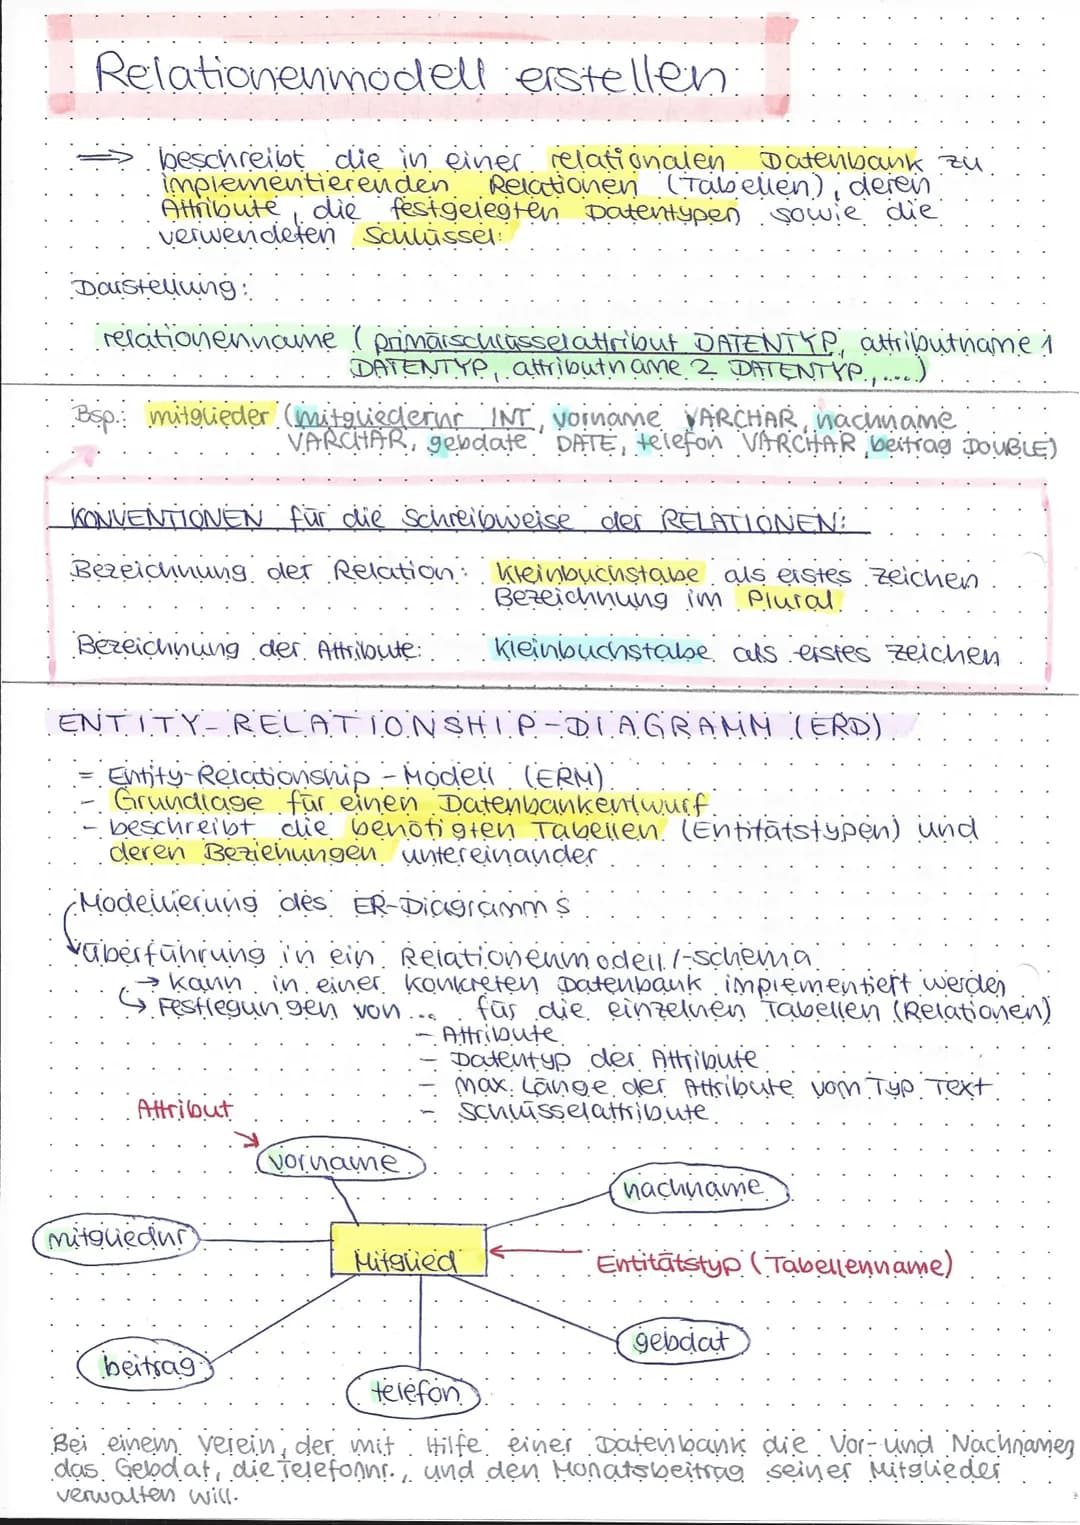 Relationenmodell erstellen
⇒ beschreibt die in einer relationalen Datenbank zu
implementierenden Relationen (Tabellen), deren
Attribute, die festgelegten Datentypen sowie die
verwendeten Schlüssel.
Darstellung:
relationenname (primärschlüsselattribut DATENTYP, attributname 1
DATENTYP, attributname 2 DATENTYP,....)
Bsp.: mitglieder (mitgliedernr INT, vorname VARCHAR, nachname
VARCHAR, gebdate DATE, telefon VARCHAR, beitrag DOUBLE)
KONVENTIONEN für die Schreibweise der RELATIONEN:
Bezeichnung der Relation: Kleinbuchstabe als erstes Zeichen
Bezeichnung im Plural
Bezeichnung der Attribute: Kleinbuchstabe als erstes Zeichen
ENTITY-RELATIONSHIP-DIAGRAMM (ERD)
= Entity-Relationship-Modell (ERM)
- Grundlage für einen Datenbankentwurf
- beschreibt die benötigten Tabellen (Entitätstypen) und
deren Beziehungen untereinander
Modellierung des ER-Diagramms
Überführung in ein Relationenmodell/-schema
→ kann in einer konkreten Datenbank implementiert werden
↳ Festlegungen von... für die einzelnen Tabellen (Relationen)
- Attribute
- Datentyp der Attribute
- max. Länge der Attribute vom Typ Text
- Schlüsselattribute
Attribut
vorname
nachname
mitgliednr
Mitglied
Entitätstyp (Tabellenname)
gebdat
beitrag
telefon
Bei einem Verein, der mit Hilfe einer Datenbank die Vor- und Nachnamen
das Gebdat, die Telefonnr., und den Monatsbeitrag seiner Mitglieder
verwalten will.